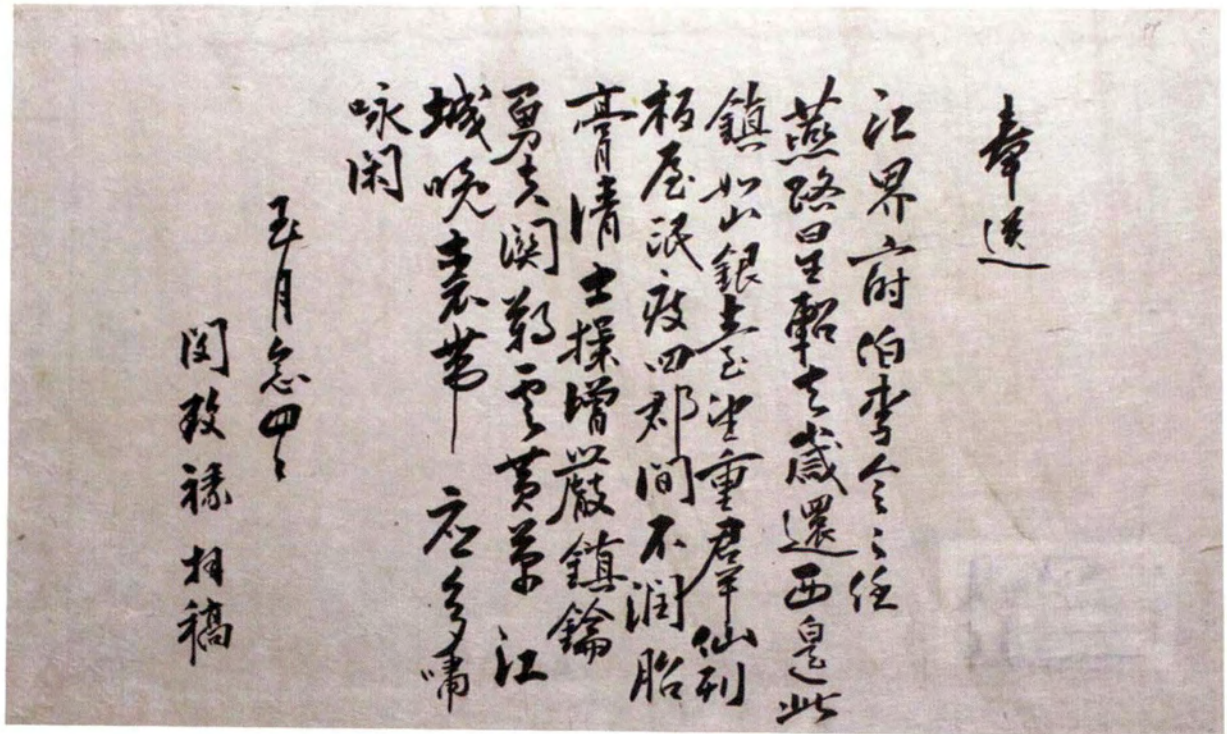 奉送
江界府伯李令之任
燕路星軺去歲還西此
鎮如山銀臺望重羣仙列
板屋氓疲四郡間不潤脂
膏清士操增嚴鎮鑰
勇夫関雲黃草江
城晚裘帶應多嘯
咏閑
五月念四日
閔致祿拜稿